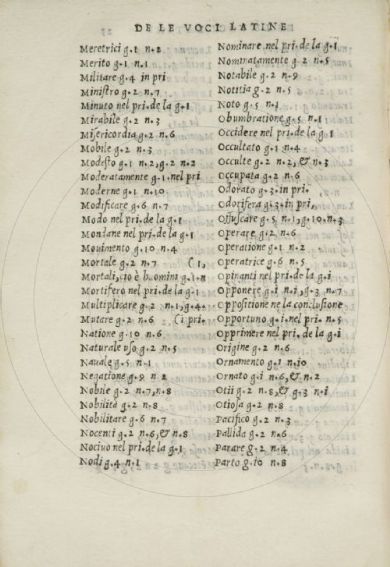 DE LE VOCI LATINE
Meretrici g.1 n.2
Merito g.1 n.1
Militare g.4 in pri
Ministro g.2 n.7
Minuto nel pri.de la g.1
Mirabile g.2 n.3
Misericordia g.2 n.6
Mobile g.2 n.3
Modesto g.1 n.2, g.2 n.2
Moderatamente g.1.nel pri
Moderne g.1 n.10
Modificare g.6 n.7
Modo nel pri.de la g.1
Mondane nel pri.de la g.1
Mouimento g.10 n.4
Mortale g.2 n.7 (1,
Mortali, io è huomini g.1.n
Mortifero nel pri.de la g.1
Multiplicare g.2 n.1, g.4.
Mutare g.2 n.6 (i pri.
Natione g.10 n.6
Naturale uso g.2 n.5
Nauale g.5 n.1
Negatione g.9 n.2
Nobile g.2 n.7, n.8
Nobilità g.2 n.8
Nobilitare g.6 n.7
Nocenti g.2 n.6, & n.8
Nociuo nel pri.de la g.1
Nodi g.4 n.1
Nominare nel pri.de la g.1
Nominatamente g.2 n.5
Notabile g.2 n.9
Notitia g.2 n.5
Noto g.5 n.1
Obumbratione g.5 n.1
Occidere nel pri.de la g.1
Occultato g.1 n.4
Occulte g.2 n.2, & n.3
Occupata g.2 n.6
Odorato g.3.in pri.
Odorifera g.3.in pri,
Offuscare g.5 n.1, g.10.n.3
Operare g.2 n.6
Operatione g.1 n.2
Operatrice g.6 n.5
Opinanti nel pri.de la g.i
Opponere g.1 n.1, g.3 n.7
Oppositione ne la conclusione
Opportuno g.1.nel pri.n.5
Opprimere nel pri.de la g.i
Origine g.2 n.6
Ornamento g.1 n.10
Ornato g.i n.6, & n.2
Otii g.2 n.8, & g.3 n.i
Otiosa g.2 n.8
Pacifico g.2 n.3
Pallida g.2 n.6
Parare g.2 n.4
Parto g.10 n.8